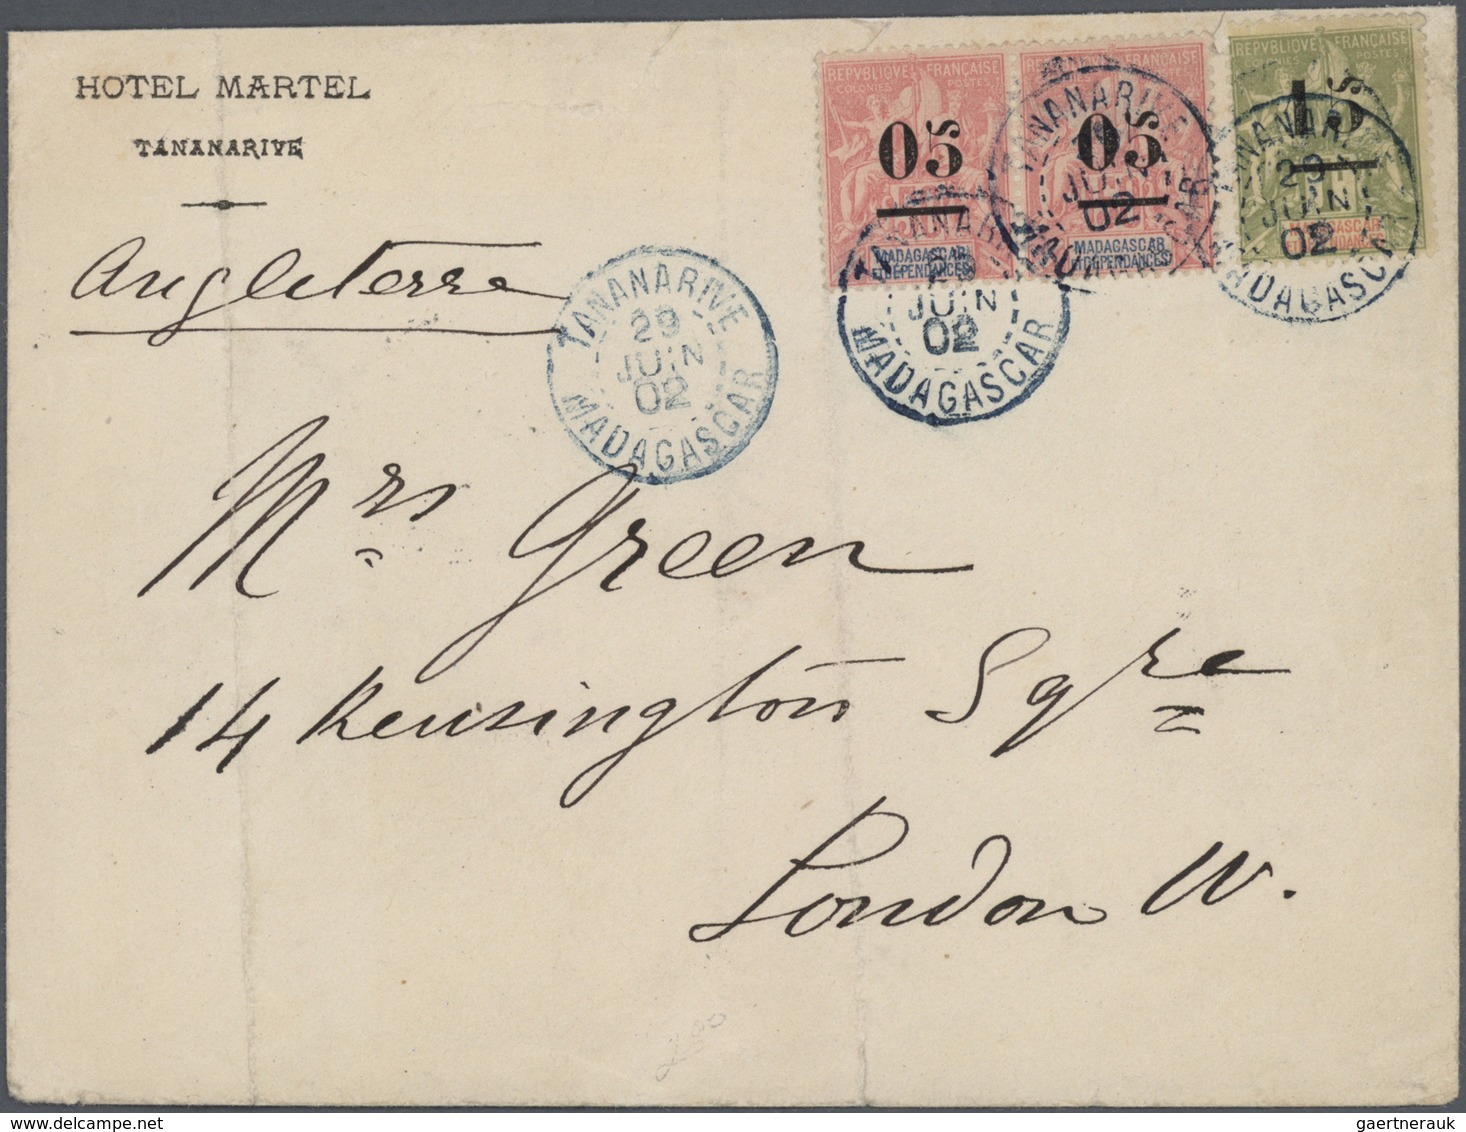 HOTEL MARTEL
TANANARIVE
Angleterre
REPVBLIQVE FRANÇAISE
COLONIES POSTES
05
MADAGASCAR
ET DÉPENDANCES
REPVBLIQVE FRANÇAISE
05
MADAGASCAR
ET DÉPENDANCES
REPVBLIQVE FRANÇAISE
COLONIES POSTES
15
MADAGASCAR
ET DÉPENDANCES
TANANARIVE
29
JUIN
02
MADAGASCAR
TANANARIVE
JUIN
02
MADAGASCAR
TANANARIVE
JUIN
02
MADAGASCAR
TANANARIVE
29
JUIN
02
MADAGASCAR
Mrs Green
14 Kensington Sqre
London W.
gaertnerauk